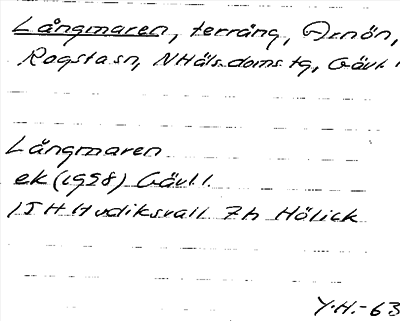 Långmaren, terräng, Arnön,
Rogsta sn, NHäls. doms. tg, Gävl.
Långmaren
ek (1958) Gävl l.
15H Hudiksvall 7h Hölick
Y.H.-63